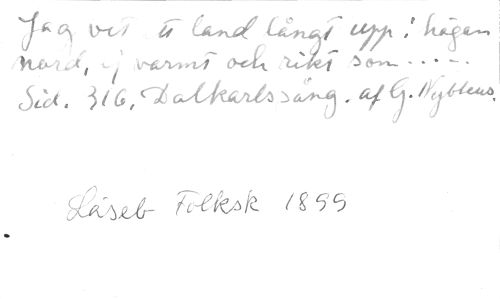 Jag vet ett land långt upp i högan
nord, ej varmt och rikt som .....
Sid. 316. Dalkarlssång. af G. Nyblæus.
Läseb Folksk 1899